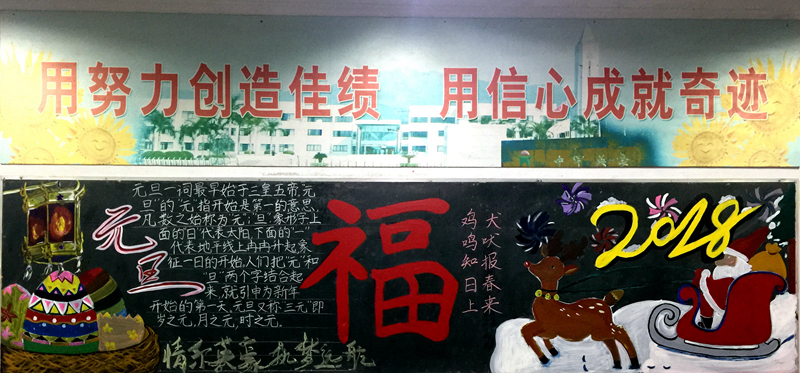 用努力创造佳绩 用信心成就奇迹
元旦
元旦一词最早始于三皇五帝,元
旦"的"元"指开始是第一的意思
凡数之始称为元;旦"象形字上
面的日"代表太阳,下面的"一"
代表地平线上冉冉升起,象
征一日的开始.人们把"元"和
"旦"两个字结合起
来,就引申为新年
开始的第一天.元旦又称"三元"即
岁之元,月之元,时之元.
福
犬吠报春来
鸡鸣知日上
2018